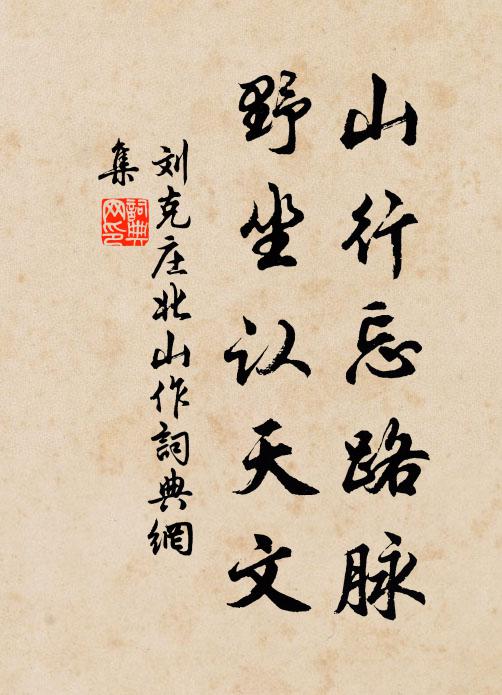 山行忘路脉
野坐认天文
刘克庄北山作词典網
集
詞典网印